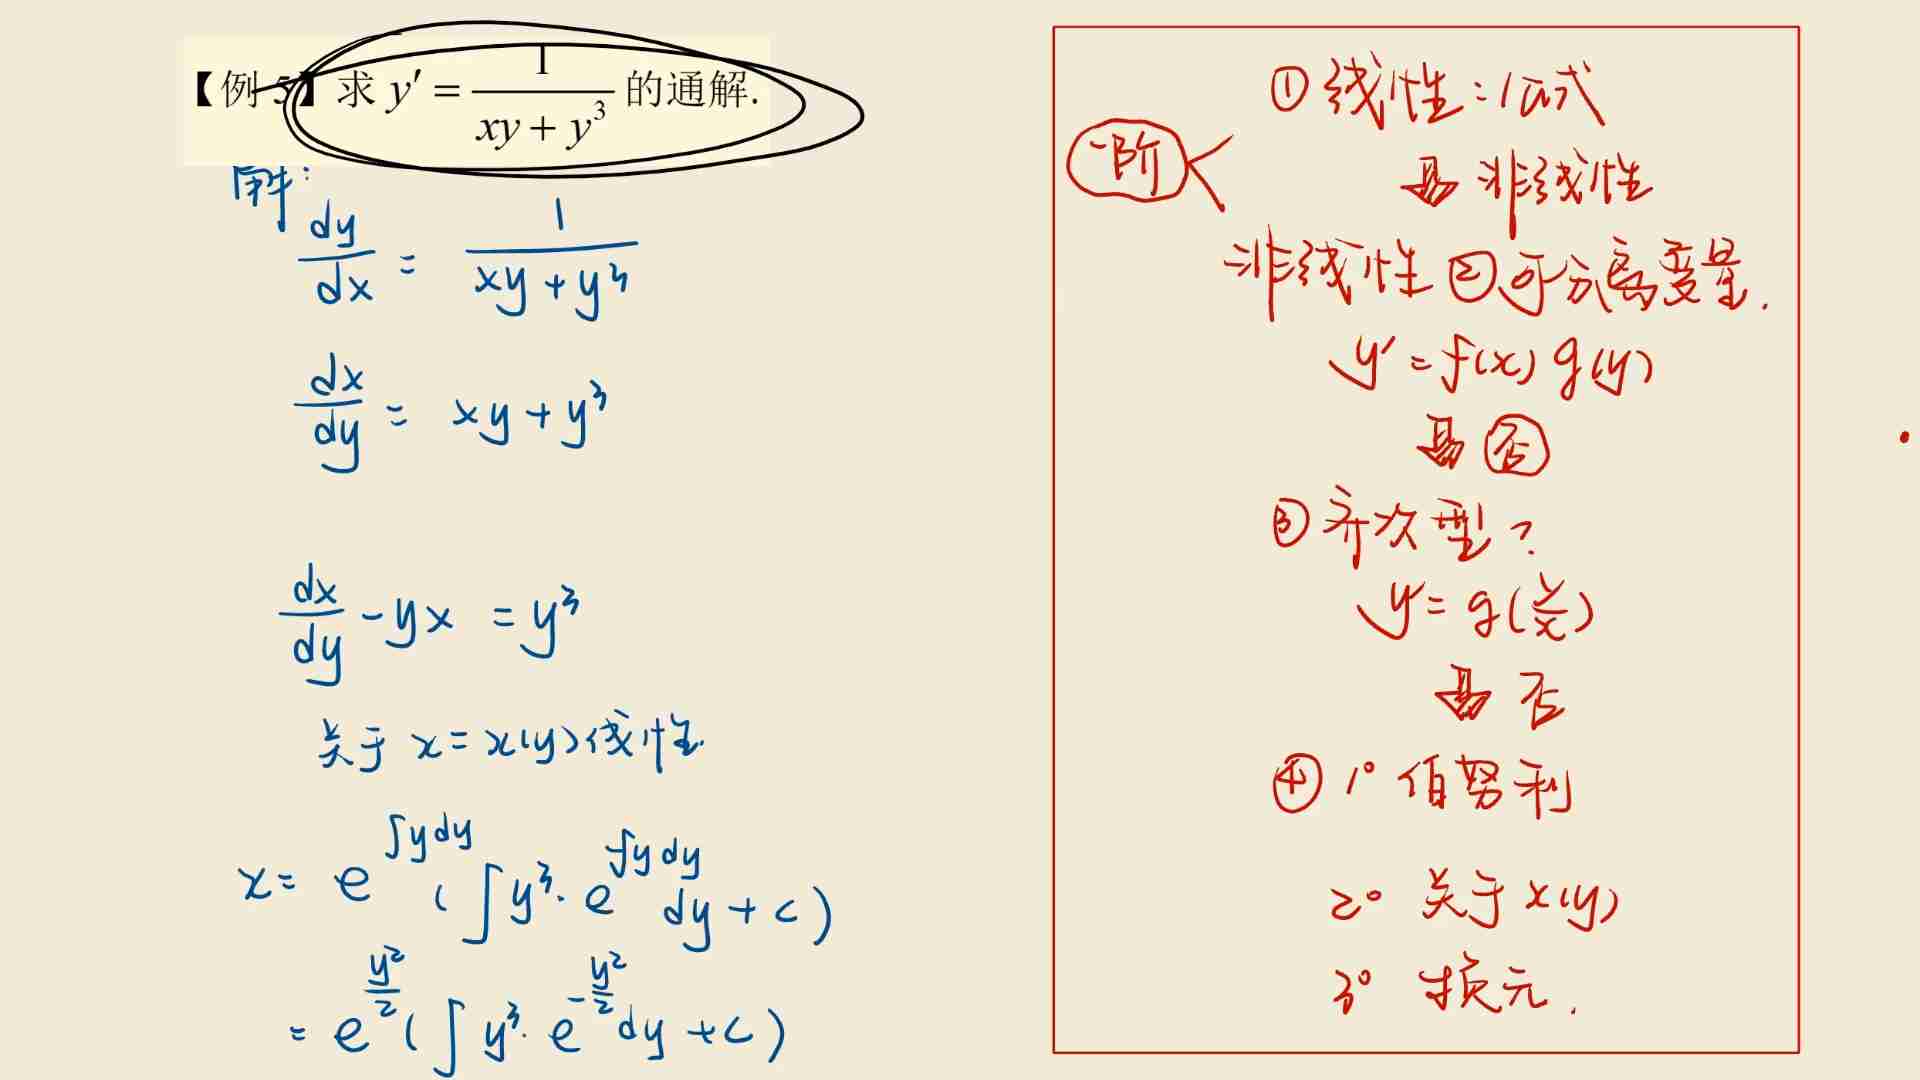 【例 5】求 y′ = 1/(xy + y³) 的通解.
解:
dy/dx = 1/(xy + y³)
dx/dy = xy + y³
dx/dy - yx = y³
关于 x = x(y) 线性.
x = e^{∫y dy} ( ∫ y³ · e^{-∫y dy} dy + c )
= e^{y²/2} ( ∫ y³ · e^{-y²/2} dy + c )
一阶
① 线性: 公式
非线性
非线性 ② 可分离变量.
y′ = f(x) g(y)
否
③ 齐次型?
y′ = g(y/x)
否
④ 1° 伯努利
2° 关于 x(y)
3° 换元.